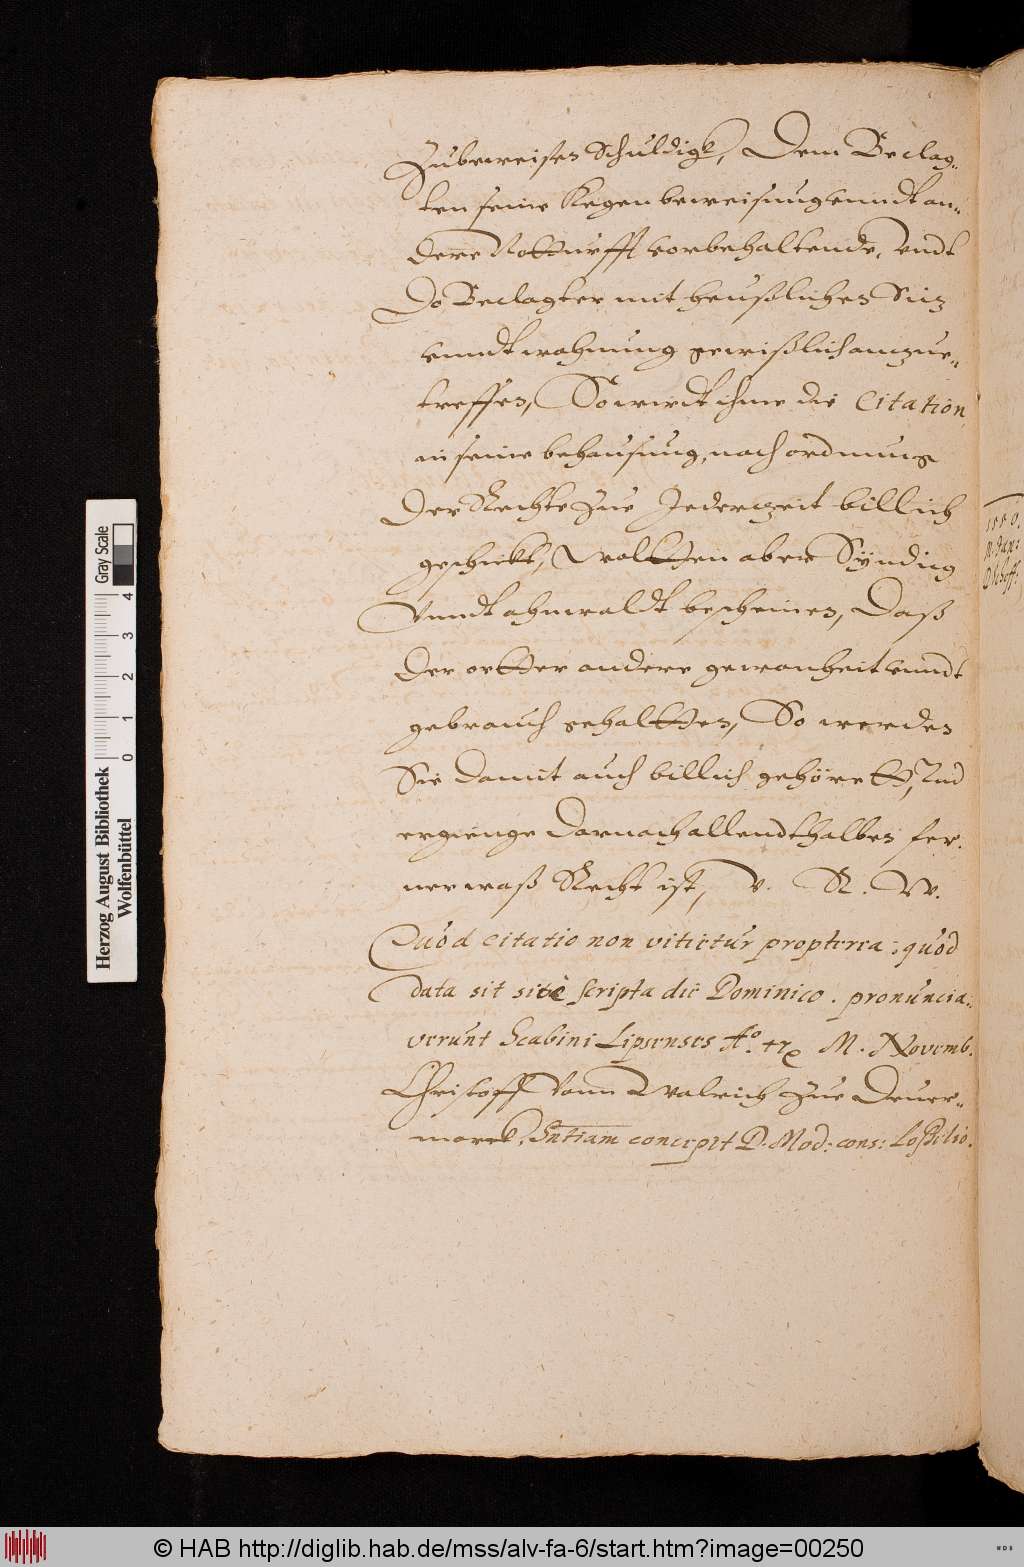 Zubeweisen schuldigk, Dem Beclag-
ten seine Kegen beweisung vnndt an-
dere Notturfft vorbehaltende, Vndt
Do Beclagter mit heußlichen Sitz
vnndt wohnung gewißlich anzue-
treffen, So wirdt ihme die Citation
in seine behausung, nach ordnung
Der Rechte Zue Jederzeit billich
geschickt, Woltten aber Syndicg
Vnndt ahnwaldt bescheinen, Daß
der ortter andere gewonheit vnndt
gebrauch gehaltten, So werden
Sie damit auch billich gehörett, Vnd
ergienge darnach allendthalben fer-
ner waß Recht ist, V. R. W.
Quod citatio non vitietur propterea, quod
data sit siue scripta die Dominico. pronuncia-
verunt Scabini Lipsenses Ao. M. Novemb.
Christoff Vonn Walwich Zue Deuer-
morck. Sntiam concepit D. Mod: cons:
Herzog August Bibliothek
Wolfenbüttel
Gray Scale
0 1 2 3 4
© HAB http://diglib.hab.de/mss/alv-fa-6/start.htm?image=00250